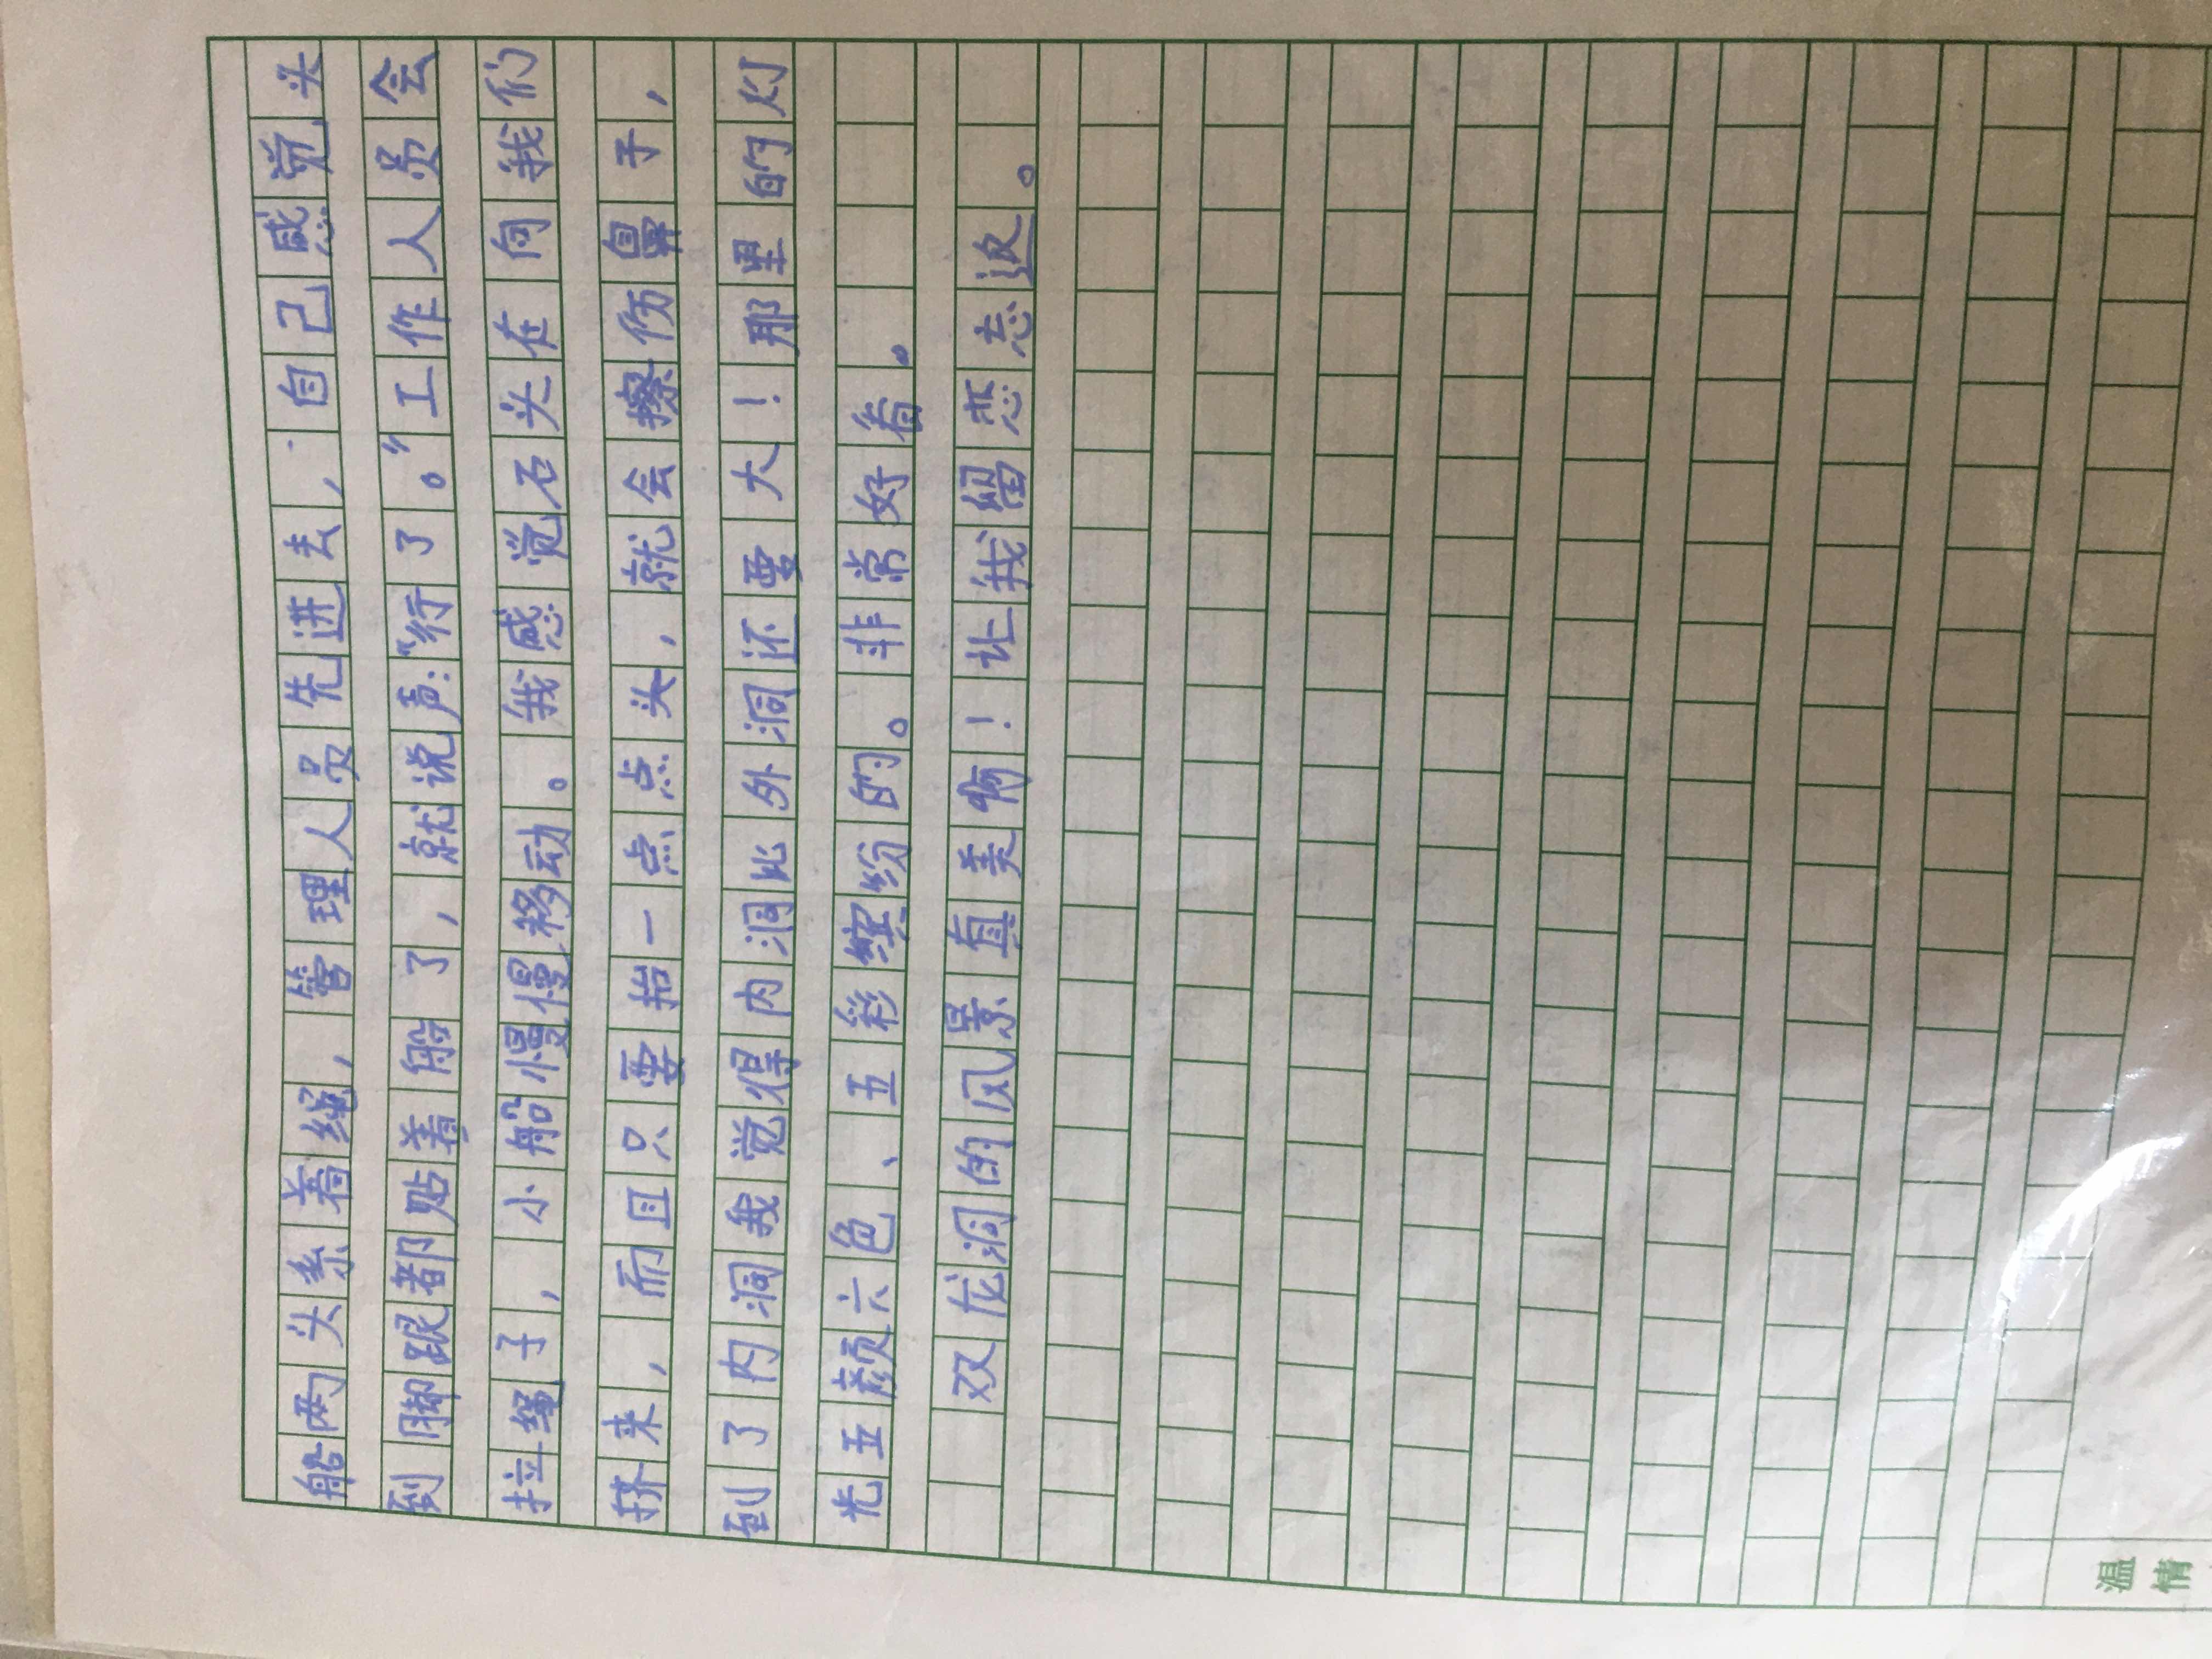 船两头系着绳，管理人员先进去，自己感觉头
到脚跟都贴着船了，就说声：“行了。”工作人员会
拉绳子，小船慢慢移动。我感觉石头在向我们
挤来，而且只要抬一点点头，就会擦伤鼻子，
到了内洞我觉得内洞比外洞还要大！那里的灯
光五颜六色、五彩缤纷的。非常好看。
双龙洞的风景真美啊！让我留恋忘返。
温
情